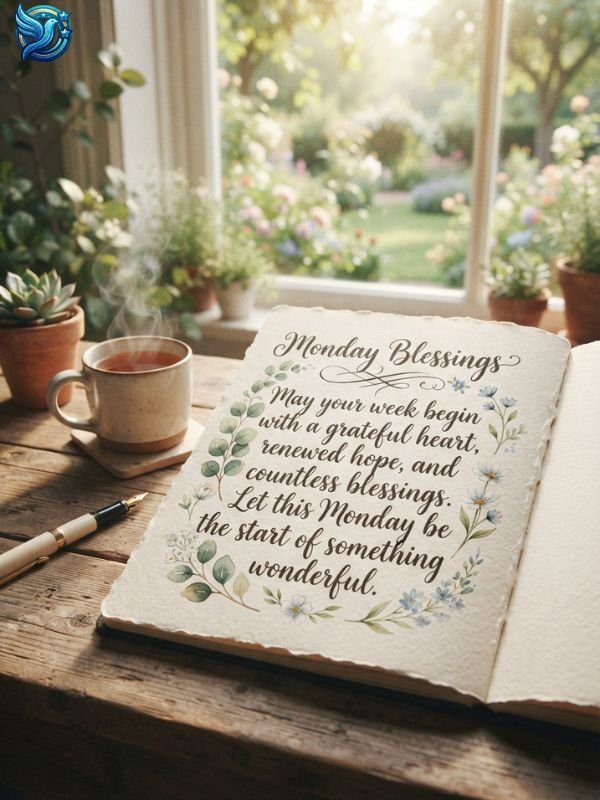 Monday Blessings
May your week begin
with a grateful heart,
renewed hope, and
countless blessings.
Let this Monday be
the start of something
wonderful.